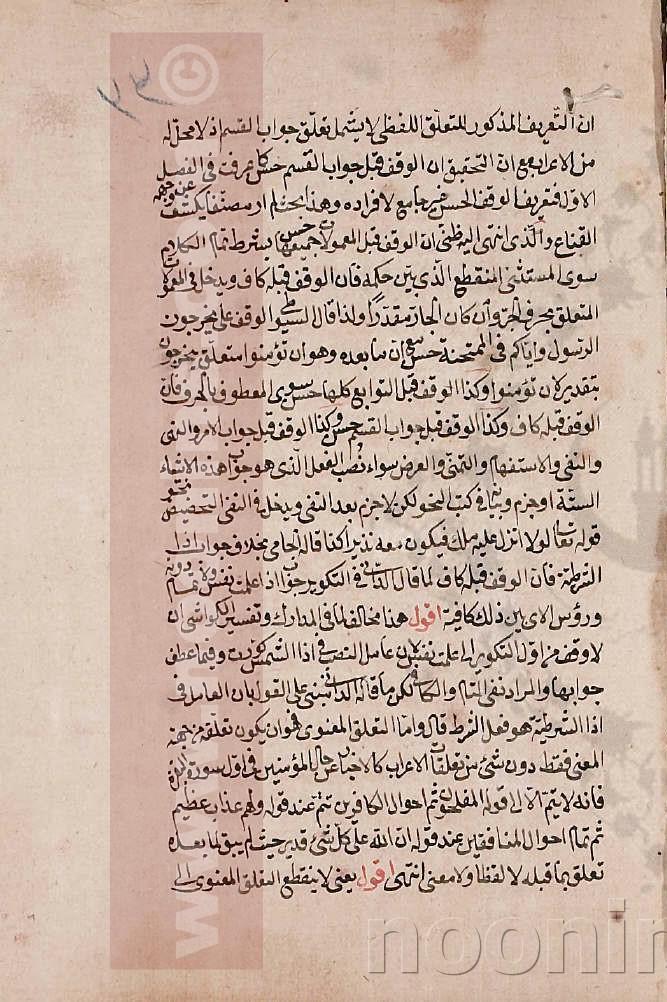 ٢٣
ان التعريف المذكور للمتعلق اللفظى لا يشمل تعلق جواب القسم اذ لا محل له
من الاعراب مع ان التحقيق ان الوقف قبل جواب القسم حسن كما عرفت فى الفصل
الاول فتعريف الوقف الحسن غير جامع لافراده وهذا بحث لم ار مصنفا يكشف عن وجهه
القناع والذى انتهى اليه ظنى ان الوقف قبل المعمولات جميعها حسن بشرط تمام الكلام
سوى المستثنى المنقطع الذى بين حكمه فان الوقف قبله كاف ويدخل فى المعمولات
المتعلق بحرف الجر وان كان الجار مقدرا ولذا قال السيوطى الوقف على يخرجون
الرسول واياكم فى الممتحنة حسن مع ان ما بعده وهو ان تؤمنوا متعلق بيخرجون
بتقدير لان تؤمنوا وكذا الوقف قبل التوابع كلها حسن سوى المعطوف بالحرف فان
الوقف قبله كاف وكذا الوقف قبل جواب القسم حسن وكذا الوقف قبل جواب الامر والنهى
والنفى والاستفهام والتمنى والعرض سواء نصب الفعل الذى هو جواب هذه الاشياء
الستة او جزم وبيانه فى كتب النحو لكن لا جزم بعد النفى ويدخل فى النفى التحضيض نحو
قوله تعالى لولا انزل عليه ملك فيكون معه نذيرا كذا قاله الجامى بخلاف جواب اذا
الشرطية فان الوقف قبله كاف لما قال الدانى فى التكوير جواب اذا علمت نفس ولا تمام دونه
ورؤس الاى بين ذلك كافية اقول هذا مخالف لما فى المدارك وتفسير الكواشى ان
لا وقف من اول التكوير الى علمت نفس لان عامل النصب فى اذا الشمس كورت وفيما عطف
جوابها والمراد نفى التام والكافى لكن ما قاله الدانى مبنى على القول بان العامل فى
اذا الشرطية هو فعل الشرط قال واما التعلق المعنوى فهو ان يكون تعلقه من جهة
المعنى فقط دون شئ من تعلقات الاعراب كالاخبار عن حال المؤمنين فى اول سورة البقرة
فانه لا يتم الا الى قوله المفلحون ثم احوال الكافرين تتم عند قوله ولهم عذاب عظيم
ثم تمام احوال المنافقين عند قوله ان الله على كل شئ قدير حيث لم يبق لما بعده
تعلق بما قبله لا لفظا ولا معنى انتهى اقول يعنى لا ينقطع التعلق المعنوى الى
©
noonin